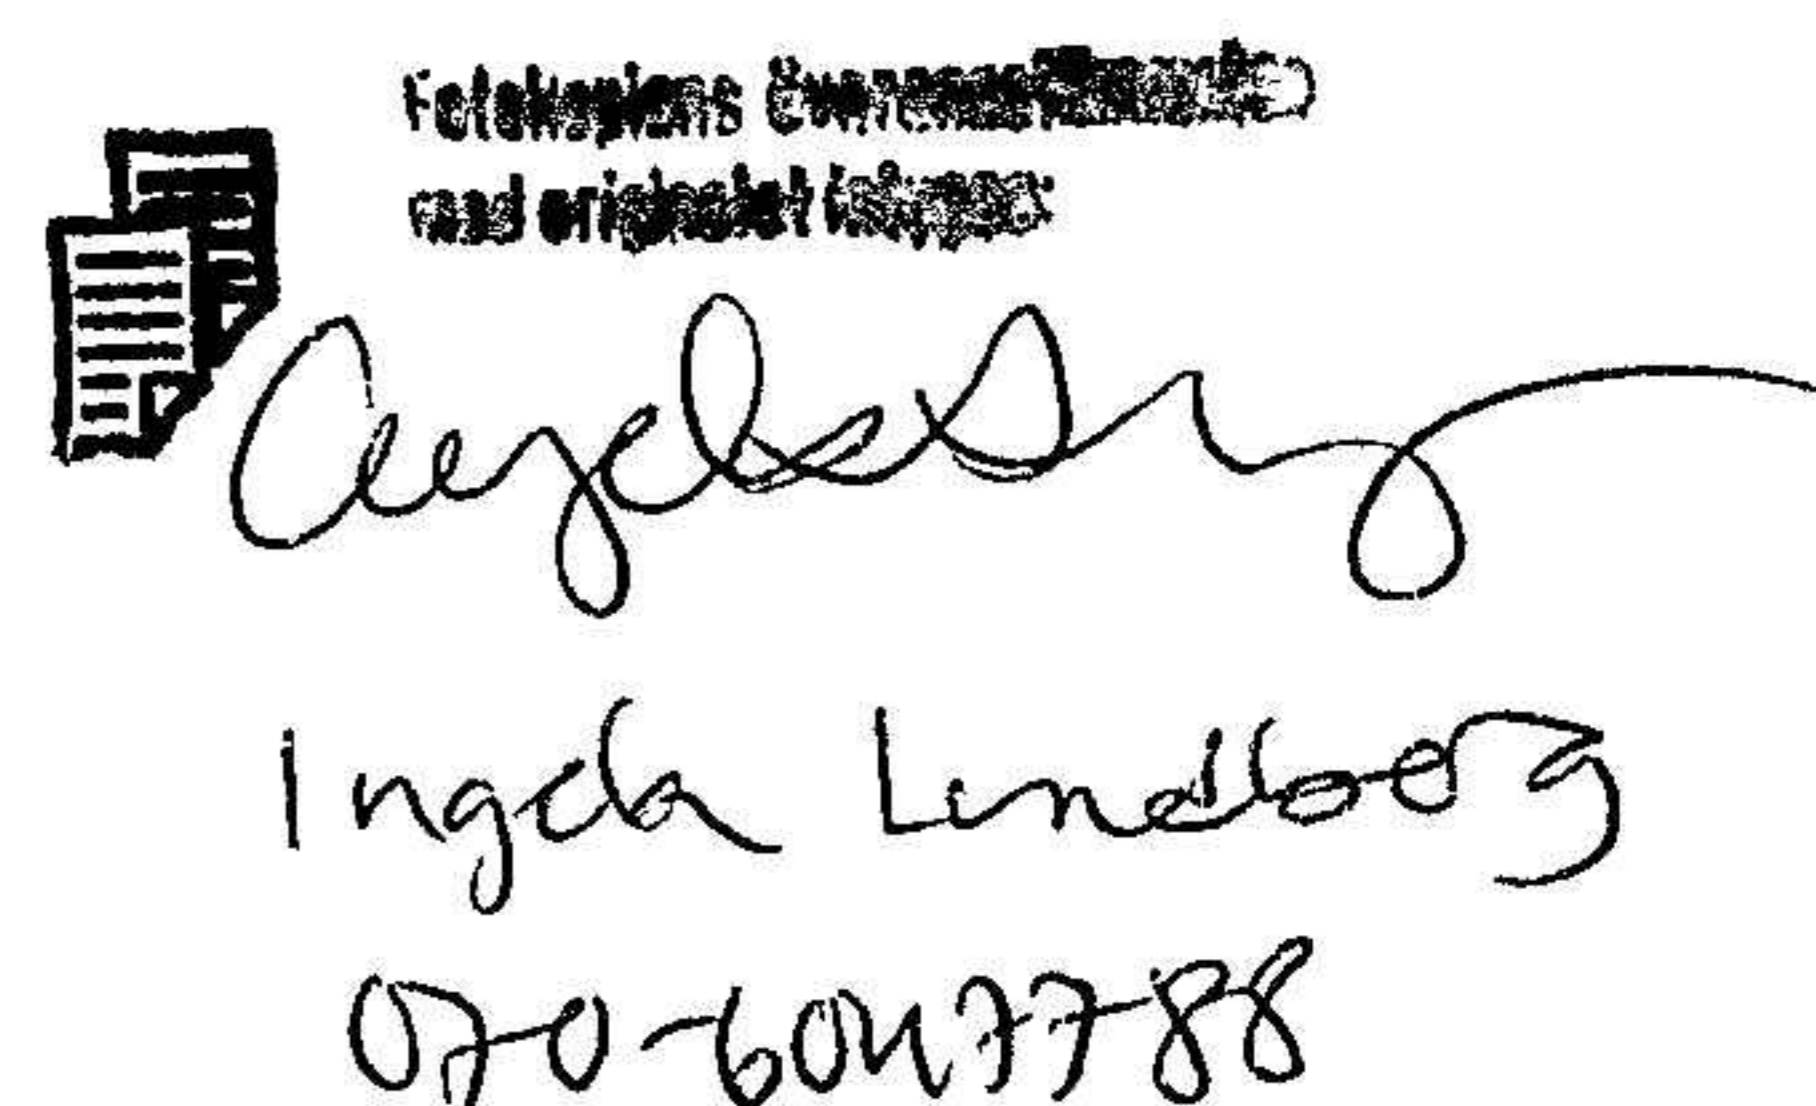 Fotokopians överensstämmelse
med originalet intygas:
Ingela Lindberg
070-6047788